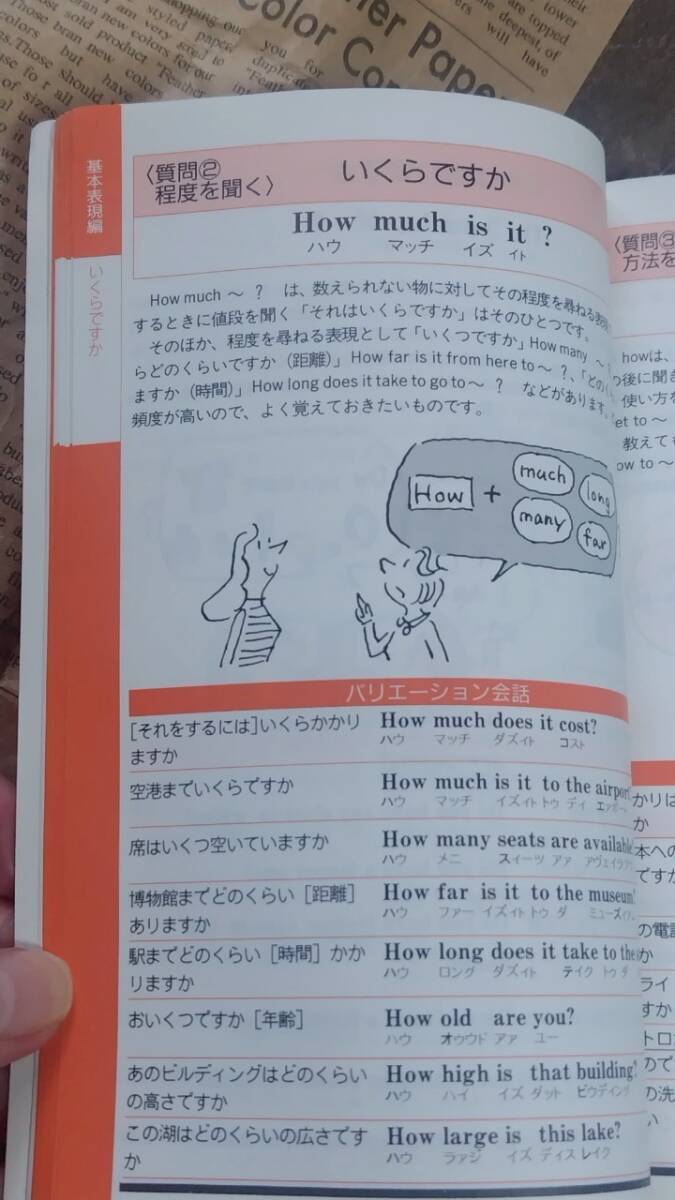 基本表現編
いくらですか
〈質問②
程度を聞く〉
いくらですか
How much is it ?
ハウ マッチ イズ イト
How much 〜 ? は、数えられない物に対してその程度を尋ねる表現
するときに値段を聞く「それはいくらですか」はそのひとつです。
そのほか、程度を尋ねる表現として「いくつですか」How many 〜
らどのくらいですか（距離）」How far is it from here to 〜 ?、「どのく
ますか（時間）」How long does it take to go to 〜 ? などがあります。
頻度が高いので、よく覚えておきたいものです。
How + much long
many far
バリエーション会話
[それをするには]いくらかかり
ますか
How much does it cost?
ハウ マッチ ダズイト コスト
空港までいくらですか
How much is it to the airport
ハウ マッチ イズイト トゥ ディ
席はいくつ空いていますか
How many seats are available
ハウ メニ スィーツ アァ
博物館までどのくらい［距離］
ありますか
How far is it to the museum?
ハウ ファー イズイト トゥ ダ
駅までどのくらい［時間］かか
りますか
How long does it take to the
ハウ ロング ダズイト テイク トゥ ダ
おいくつですか［年齢］
How old are you?
ハウ オゥウド アァ ユー
あのビルディングはどのくらい
の高さですか
How high is that building?
ハウ ハイ イズ ダット ビウディング
この湖はどのくらいの広さです
か
How large is this lake?
ハウ ラァジ イズ ディス レイク
〈質問③
方法を
howは、
の後に聞き
使い方を
et to 〜
教えても
ow to 〜
かりは
か
本への
ですか
の電話
か
ライ
すか
トロ
ので
の洗
い